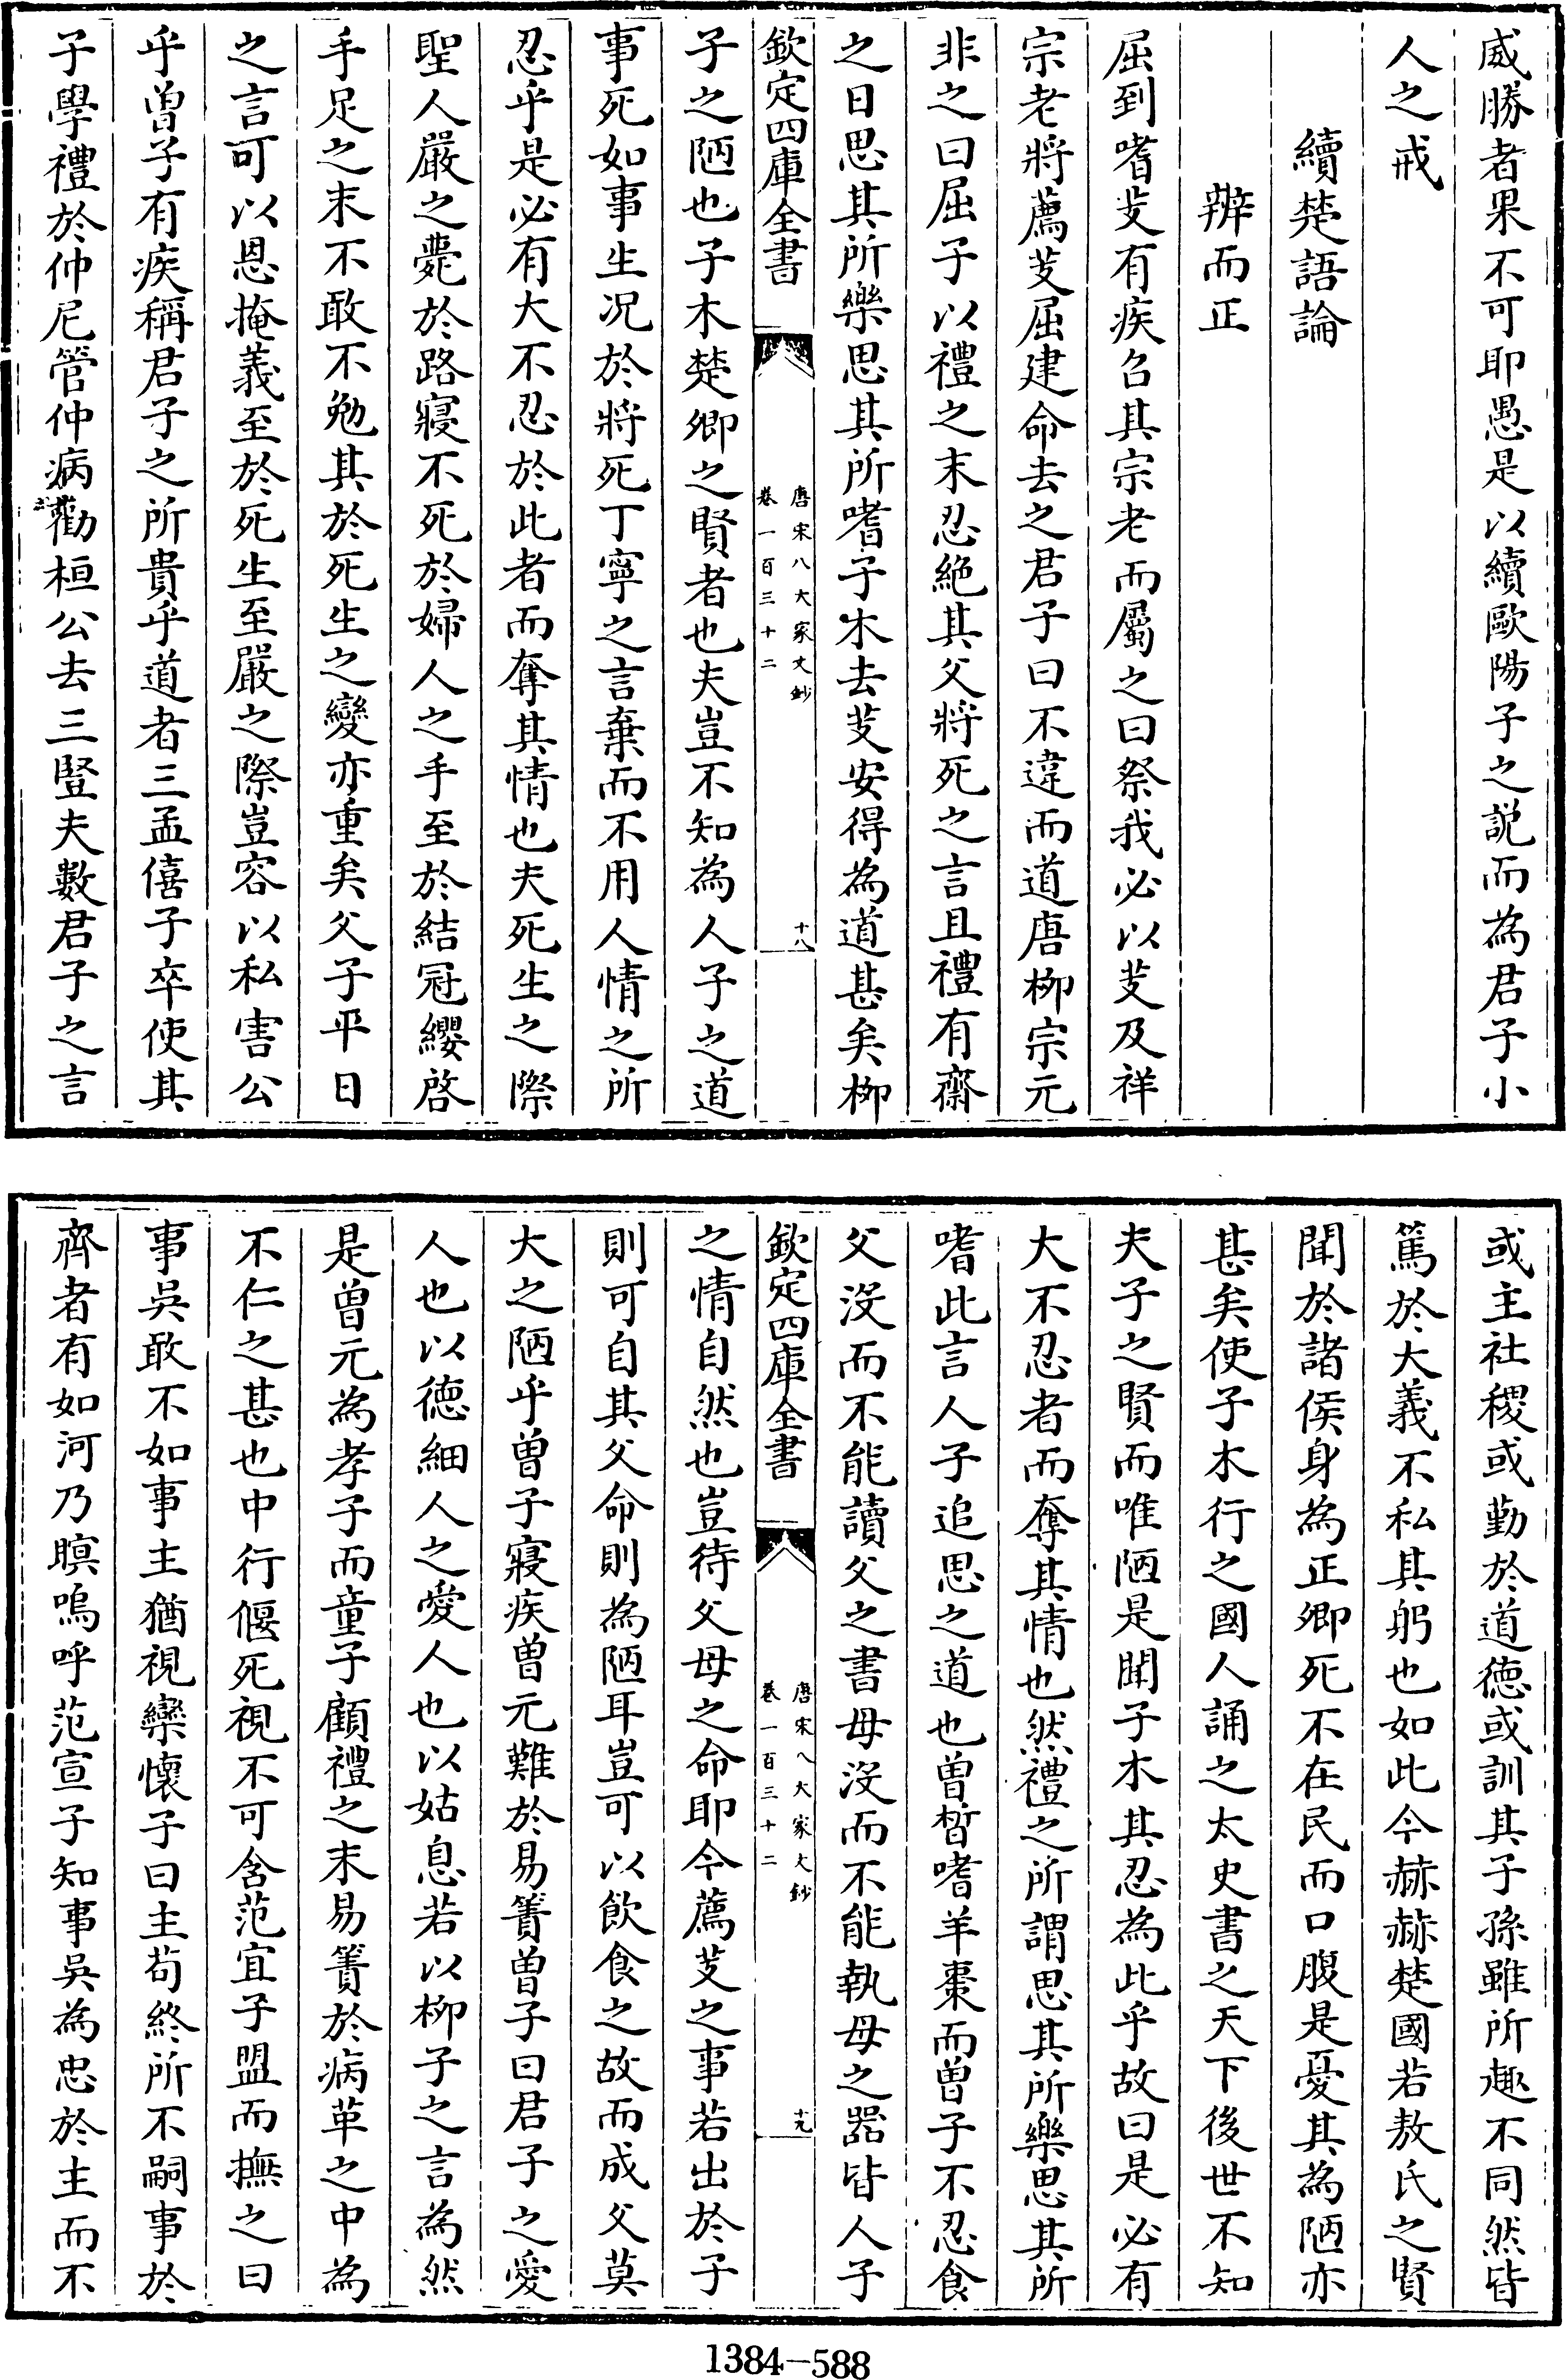 威勝者果不可耶愚是以續歐陽子之説而為君子小
人之戒
續楚語論
辨而正
屈到嗜芰有疾召其宗老而屬之曰祭我必以芰及祥
宗老將薦芰屈建命去之君子曰不違而道唐柳宗元
非之曰屈子以禮之末忍絶其父將死之言且禮有齋
之日思其所樂思其所嗜子木去芰安得為道甚矣柳
欽定四庫全書
唐宋八大家文鈔
卷一百三十二
十八
子之陋也子木楚卿之賢者也夫豈不知為人子之道
事死如事生况於將死丁寧之言棄而不用人情之所
忍乎是必有大不忍於此者而奪其情也夫死生之際
聖人嚴之薨於路寢不死於婦人之手至於結冠纓啓
手足之末不敢不勉其於死生之變亦重矣父子平日
之言可以恩掩義至於死生至嚴之際豈容以私害公
乎曾子有疾稱君子之所貴乎道者三孟僖子卒使其
子學禮於仲尼管仲病勸桓公去三豎夫數君子之言
或主社稷或勤於道德或訓其子孫雖所趣不同然皆
篤於大義不私其躬也如此今赫赫楚國若敖氏之賢
聞於諸侯身為正卿死不在民而口腹是憂其為陋亦
甚矣使子木行之國人誦之太史書之天下後世不知
夫子之賢而唯陋是聞子木其忍為此乎故曰是必有
大不忍者而奪其情也然禮之所謂思其所樂思其所
嗜此言人子追思之道也曾晳嗜羊棗而曾子不忍食
父沒而不能讀父之書母沒而不能執母之器皆人子
欽定四庫全書
唐宋八大家文鈔
卷一百三十二
十九
之情自然也豈待父母之命耶今薦芰之事若出於子
則可自其父命則為陋耳豈可以飲食之故而成父莫
大之陋乎曾子寢疾曾元難於易簀曾子曰君子之愛
人也以德細人之愛人也以姑息若以柳子之言為然
是曾元為孝子而童子顧禮之末易簀於病革之中為
不仁之甚也中行偃死視不可含范宣子盟而撫之曰
事吳敢不如事主猶視欒懷子曰主苟終所不嗣事於
齊者有如河乃瞑嗚呼范宣子知事吳為忠於主而不
1384-588